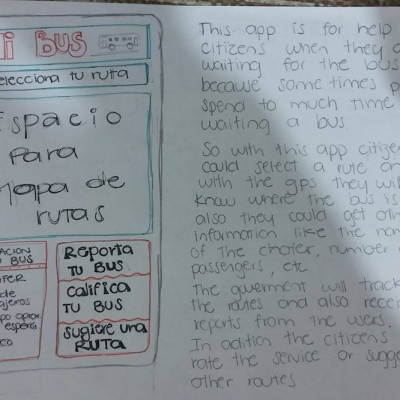 Mi BUS
selecciona tu ruta
Espacio
Para
Mapa de
rutas
BUS
Reporta
TU BUS
Califica
TU BUS
sugiere una
RUTA
This app is for help
citizens when they
waiting for the bus
because some times
spend to much time
waiting a bus.
So with this app citize
could select a rute
with the gps they wi
know where the bus is
also they could get
information like the
of the chofer, number
passengers, etc
The guverment will track
the routes and also
reports from the users.
In adition the citizens
rate the service or
other routes